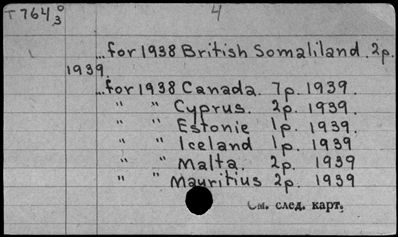 T 764 0/3 4
...for 1938 British Somaliland. 2p.
1939.
...for 1938 Canada. 7p. 1939.
" " Cyprus. 2p. 1939.
" " Estonie 1p. 1939.
" " Iceland 1p. 1939
" " Malta. 2p. 1939
" " Mauritius 2p. 1939
См. след. карт.